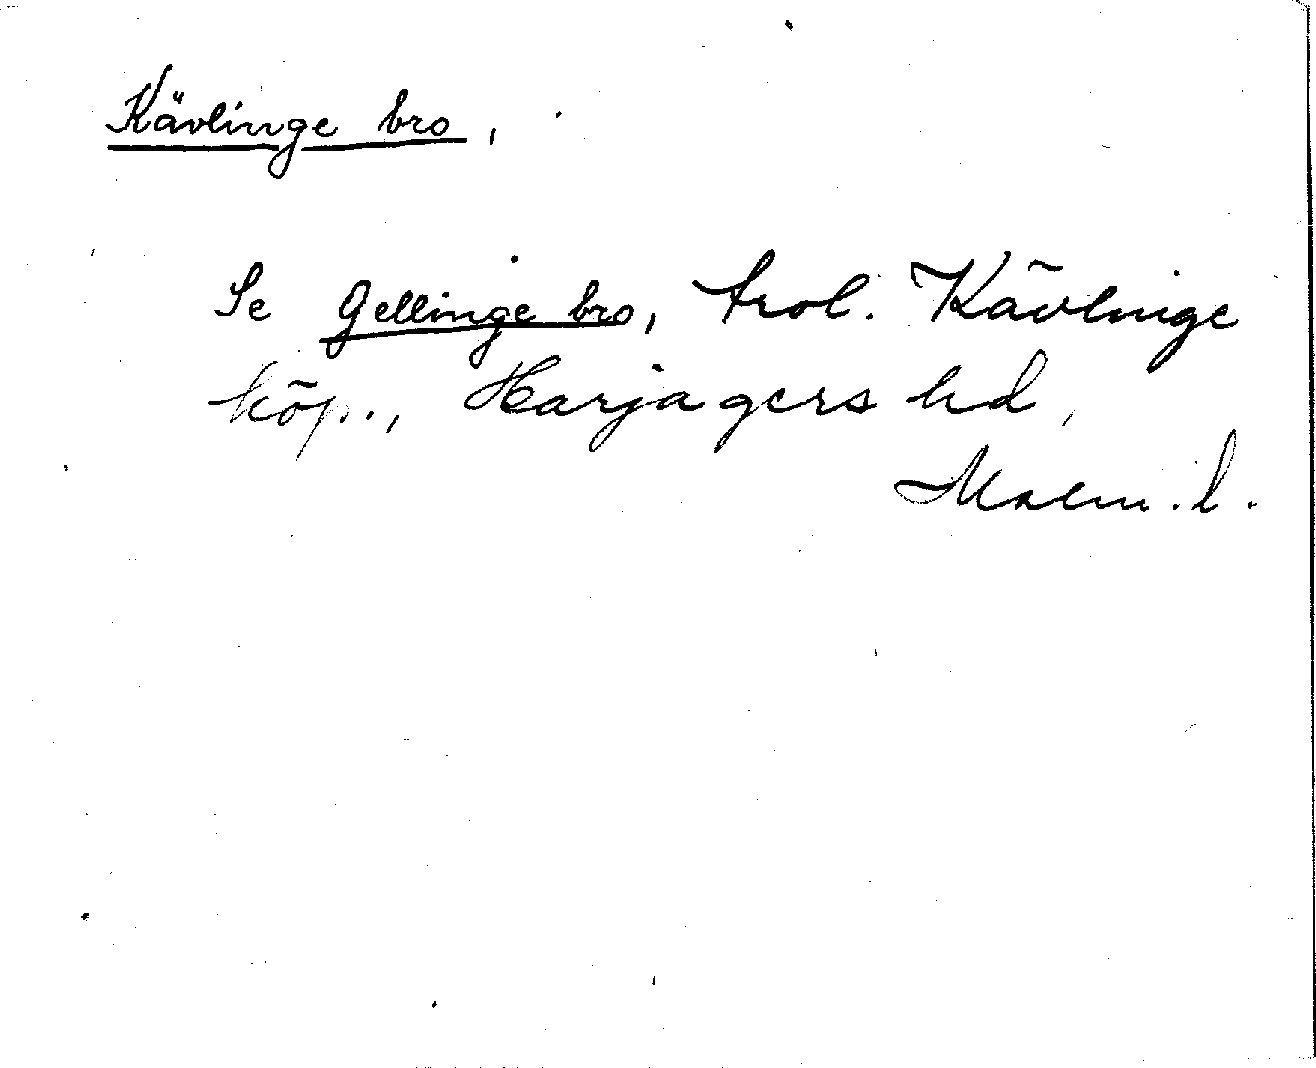 Kävlinge bro,
Se Gellinge bro, trol. Kävlinge
köp., Harjagers hd,
Malm. l.